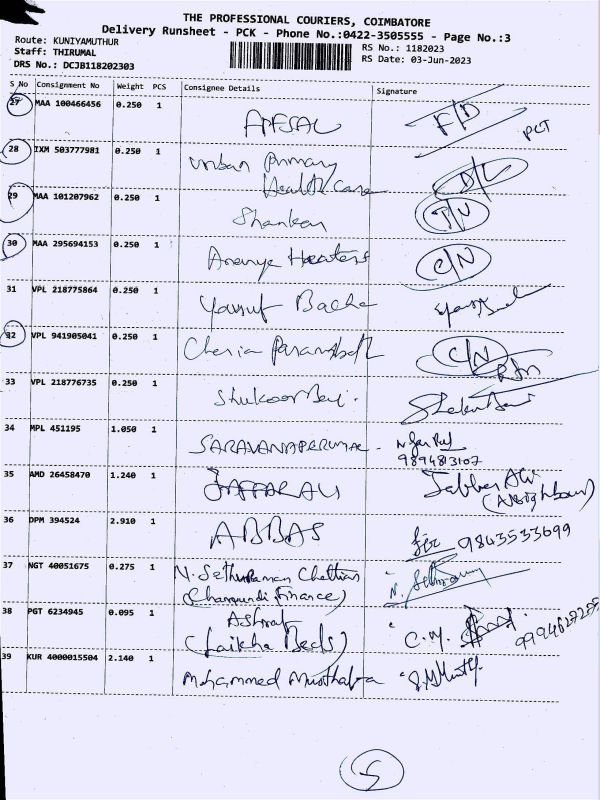 THE PROFESSIONAL COURIERS, COIMBATORE
Delivery Runsheet - PCK - Phone No.:0422-3505555 - Page No.:3
Route: KUNIYAMUTHUR
RS No.: 1182023
Staff: THIRUMAL
RS Date: 03-Jun-2023
DRS No.: DCJB118202303
S No Consignment No Weight PCS Consignee Details Signature
27 MAA 100466456 0.250 1 AFSAL F/D
PCT
28 IXM 503777981 0.250 1 Urban Primary D/L
Health Case
29 MAA 101207962 0.250 1 Shankar
30 MAA 295694153 0.250 1 Ananya Heaters C/N
31 VPL 218775864 0.250 1 Yousuf Bacha
32 VPL 941905041 0.250 1 Cheria C/N
33 VPL 218776735 0.250 1
34 MPL 451195 1.050 1 SARAVANAPERUMAL
9894813107
35 AMD 26458470 1.240 1 JAFFAR ALI Jabbar Ali
(Neighbour)
36 DPM 394524 2.910 1 ABBAS 9843533699
37 NGT 40051675 0.275 1 N. Sethuraman Chettiar
(Chamundi Finance)
38 PGT 6234945 0.095 1 Ashraf C.M.
(Laikha Beds)
39 KUR 4000015504 2.140 1 Mohammed Musthafa
5